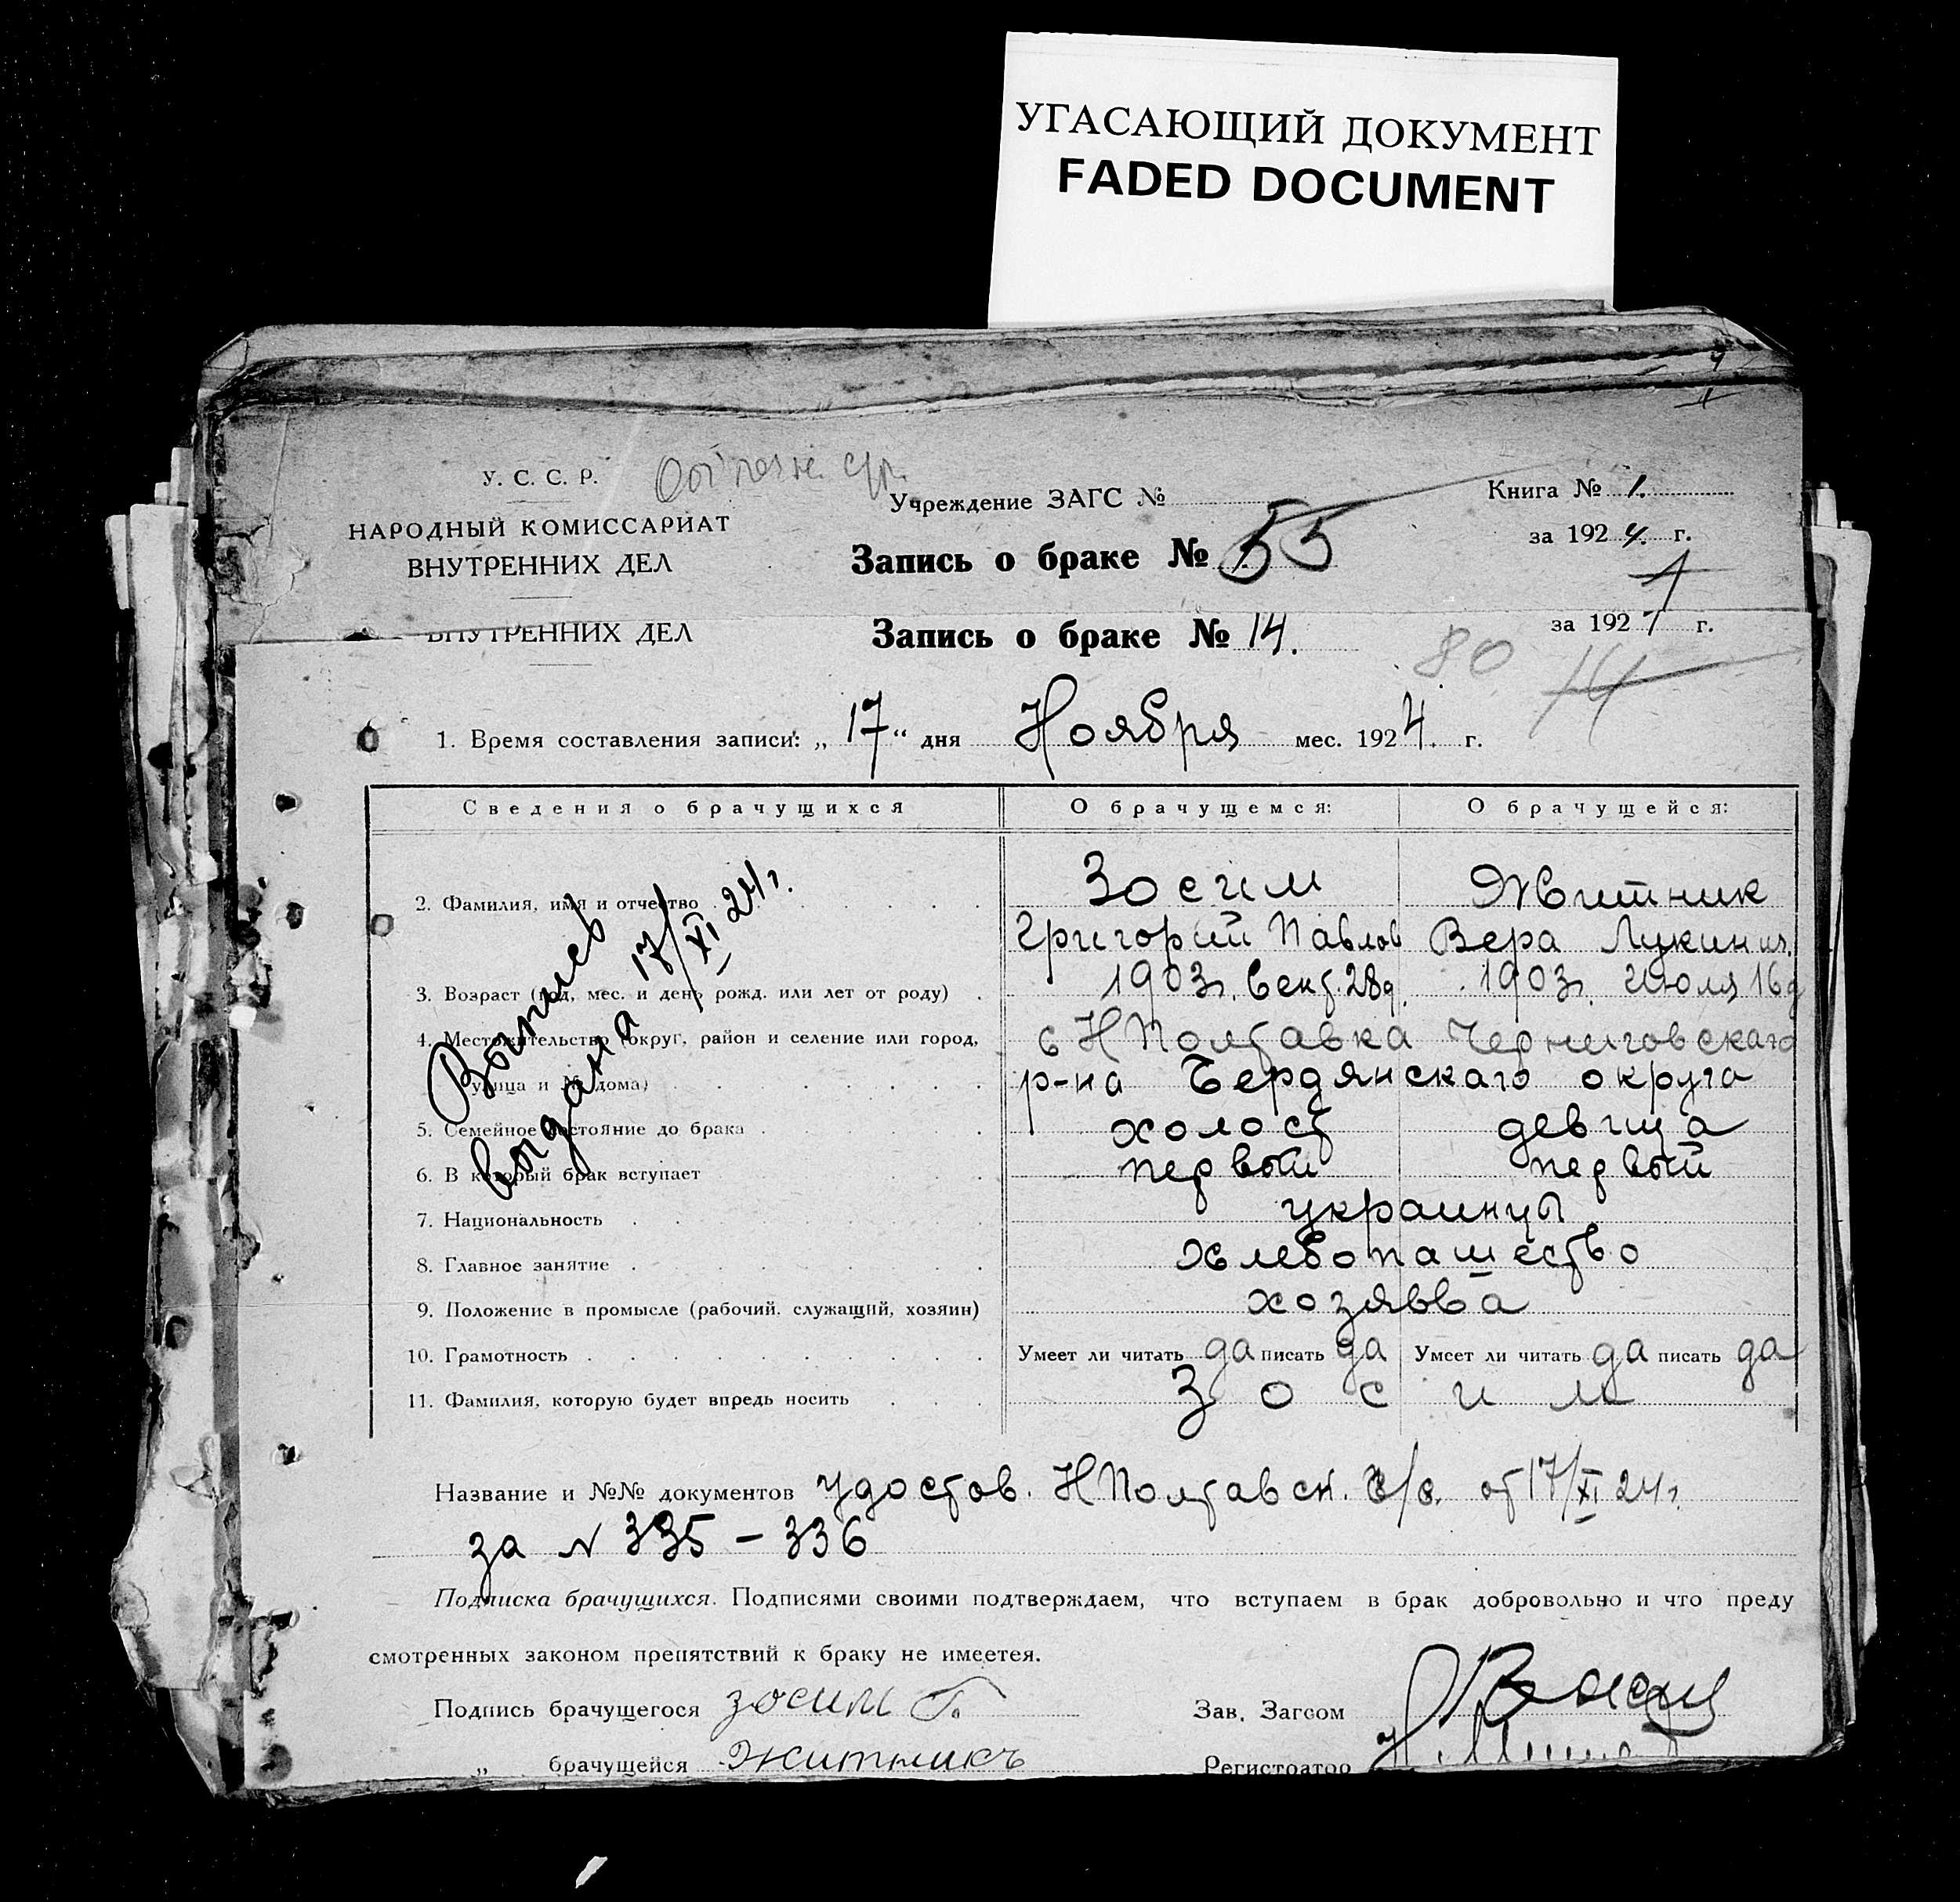 УГАСАЮЩИЙ ДОКУМЕНТ
FADED DOCUMENT
У. С. С. Р.
НАРОДНЫЙ КОМИССАРИАТ
ВНУТРЕННИХ ДЕЛ
Учреждение ЗАГС №
Запись о браке № 55
Книга № 1.
за 1924. г.
1
ВНУТРЕННИХ ДЕЛ
Запись о браке № 14.
за 192 г.
80
14
1. Время составления записи: „ 17 “ дня Ноября мес. 1924. г.
Сведения о брачущихся О брачущемся: О брачущейся:
2. Фамилия, имя и отчество Зосим Житник
Григорий Павлов Вера Лукин
3. Возраст (год, мес. и день рожд. или лет от роду) 1903г. Сект. 28д. 1903г. Июля 16д
4. Местожительство (округ, район и селение или город, с НПолтавка Черниговскаго
улица и № дома) р-на Бердянскаго округа
5. Семейное состояние до брака холост девица
6. В который брак вступает первый первый
7. Национальность украинцы
8. Главное занятие хлебопашество
9. Положение в промысле (рабочий, служащий, хозяин)
10. Грамотность Умеет ли читать да писать да Умеет ли читать да писать да
11. Фамилия, которую будет впредь носить Зосим
выдана 17/XI 24г.
Название и №№ документов удостов. НПолтавск. с/с. от 17/XI 24г.
за № 335 – 336
Подписка брачущихся. Подписями своими подтверждаем, что вступаем в брак добровольно и что преду
смотренных законом препятствий к браку не имеется.
Подпись брачущегося зосим Г. Зав. Загсом
„ брачущейся Житникъ Регистратор